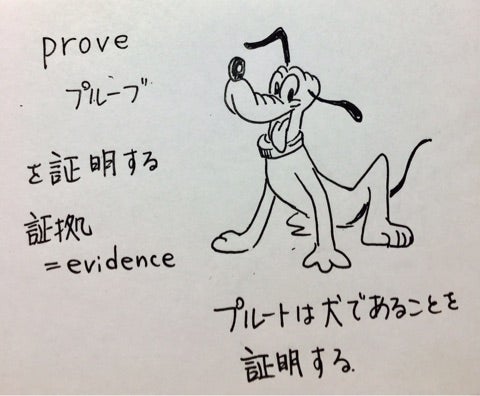 prove
プルーブ
を証明する
証拠
=evidence
プルートは犬であることを
証明する.